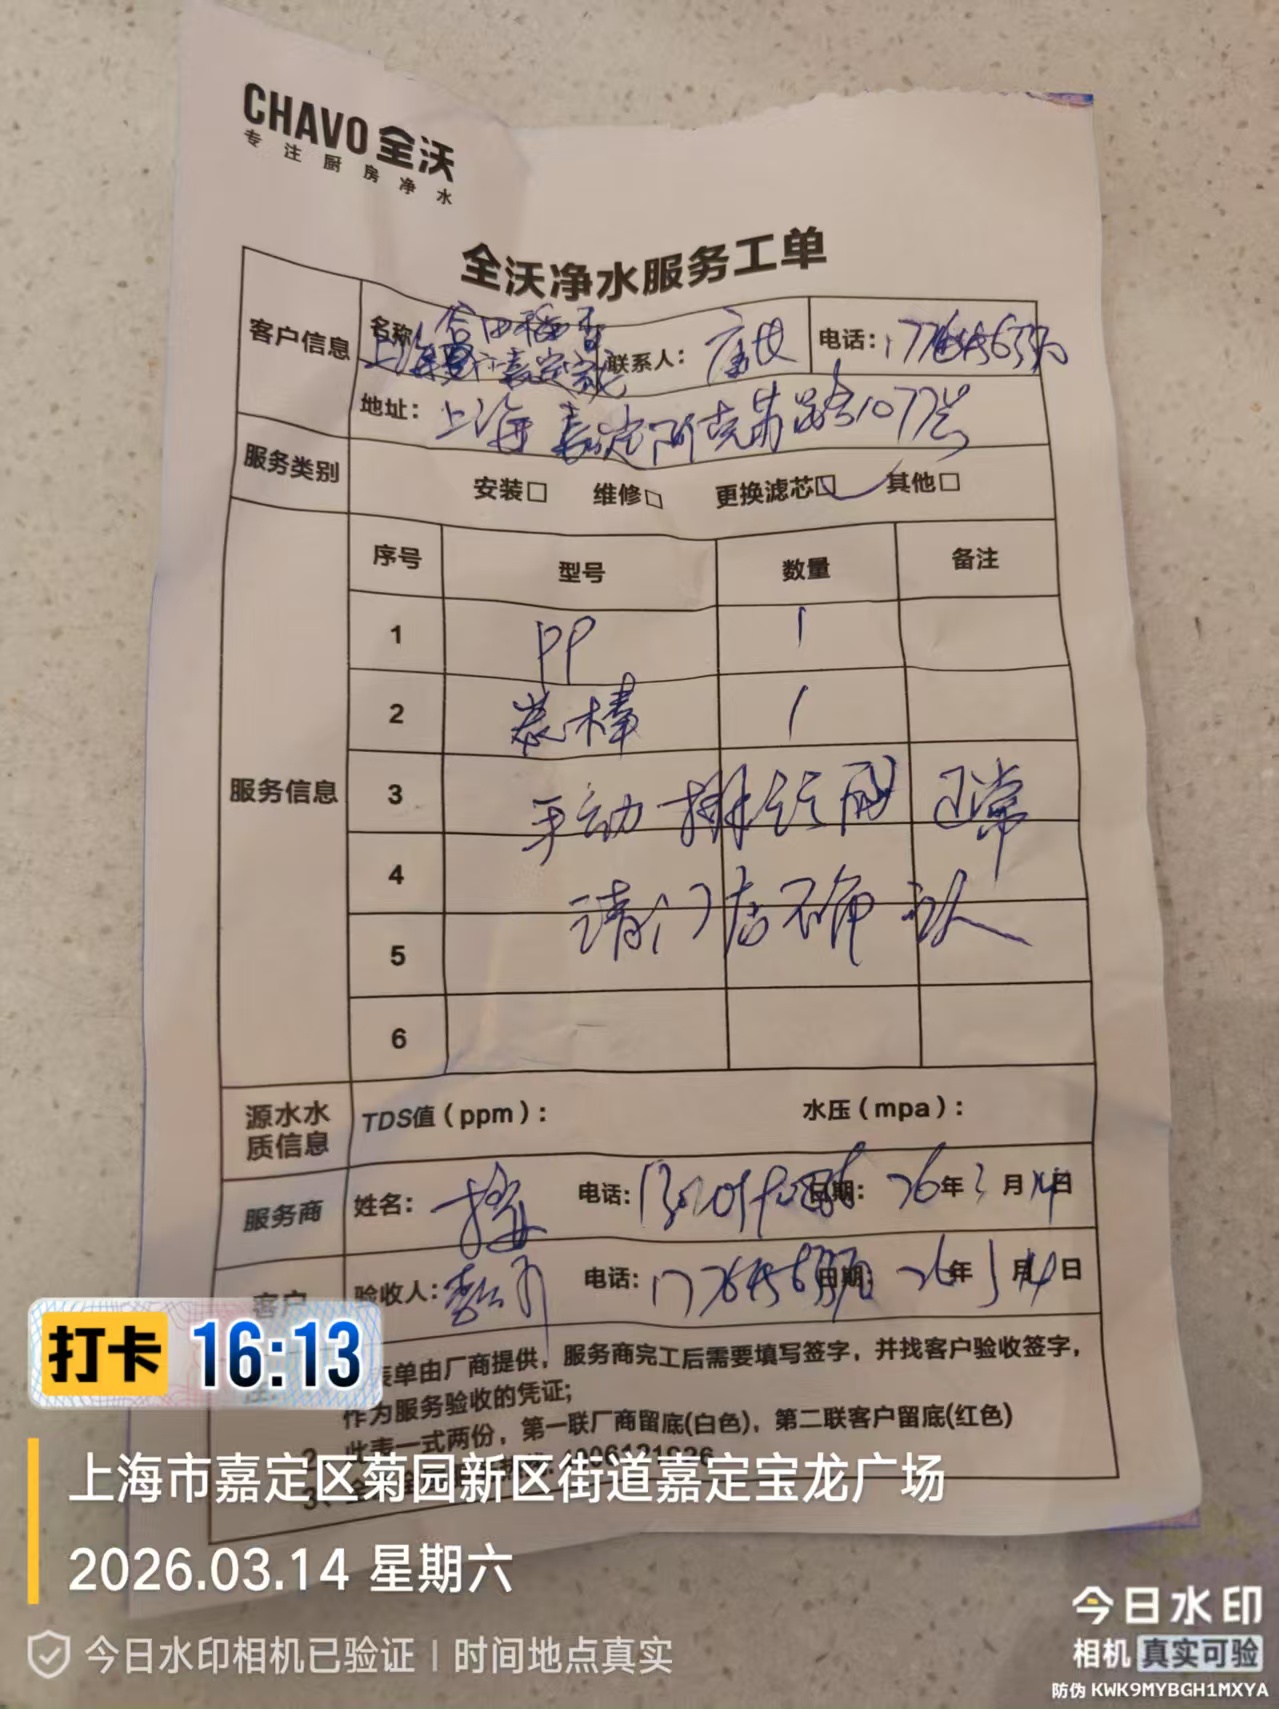 CHAVO 全沃
专注厨房净水
全沃净水服务工单
客户信息 名称 联系人: 电话:
地址: 上海嘉定阿克苏路1077号
服务类别 安装□ 维修□ 更换滤芯□ 其他□
序号 型号 数量 备注
1 PP 1
2 炭棒 1
服务信息 3 手动排污阀 正常
4 请门店确认
5
6
源水水质信息 TDS值(ppm): 水压(mpa):
服务商 姓名: 电话: 日期: 26年3月14日
客户 验收人: 电话: 日期: 26年3月14日
表单由厂商提供，服务商完工后需要填写签字，并找客户验收签字，
作为服务验收的凭证;
2、此表一式两份，第一联厂商留底(白色)，第二联客户留底(红色)
3、
打卡 16:13
上海市嘉定区菊园新区街道嘉定宝龙广场
2026.03.14 星期六
今日水印相机已验证 | 时间地点真实
今日水印
相机 真实可验
防伪 KWK9MYBGH1MXYA